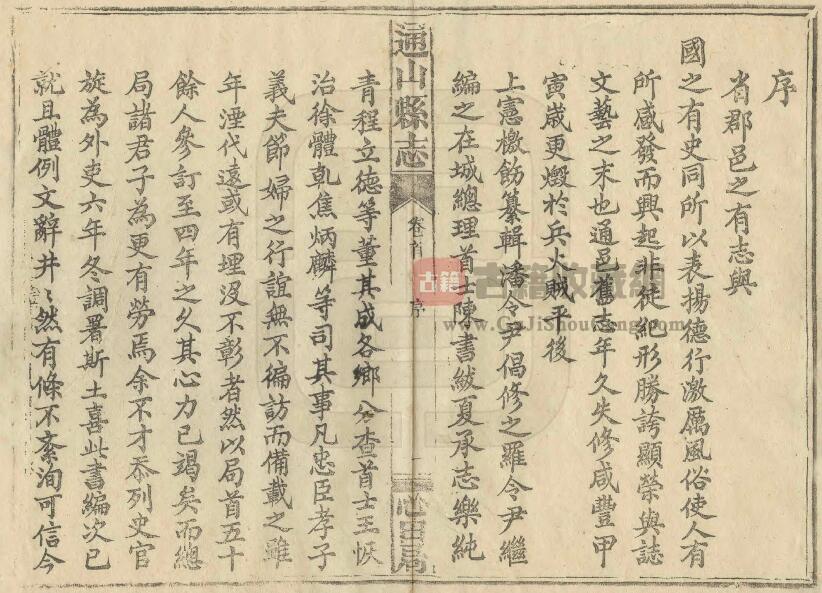 序
省郡邑之有志與
國之有史同所以表揚德行激厲風俗使人有
所感發而興起非徒紀形勝誇顯榮與誌
文藝之末也通邑舊志年久失修咸豐甲
寅歲更燬於兵火賊平後
上憲檄飭纂輯潘令尹倡修之羅令尹繼
編之在城總理首士陳書紱夏承志樂純
通山縣志
卷首
序
一
心田局
青程立德等董其成各鄉分查首士王恢
治徐體乹焦炳麟等司其事凡忠臣孝子
義夫節婦之行誼無不徧訪而備載之雖
年湮代遠或有埋没不彰者然以局首五十
餘人參訂至四年之久其心力已竭矣而總
局諸君子為更有勞焉余不才忝列史官
旋為外吏六年冬調署斯土喜此書編次已
就且體例文辭井〻然有條不紊洵可信今
古籍
古籍收藏網
www.GuJiShouCang.com